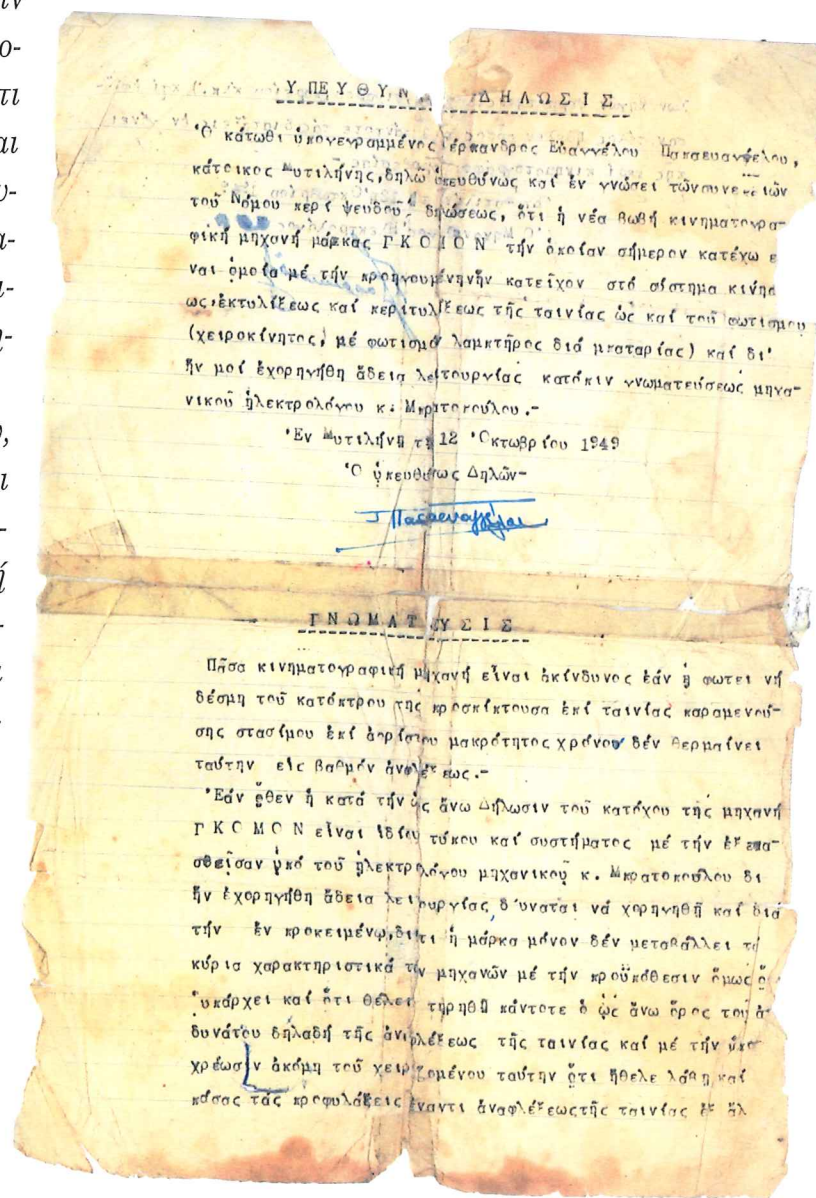 ΥΠΕΥΘΥΝ ΔΗΛΩΣΙΣ
Ὁ κάτωθι ὑπογεγραμμένος Εὐαγγέλου Παπαευαγγέλου,
κάτοικος Μυτιλήνης, δηλῶ ὑπευθύνως καί ἐν γνώσει τῶν συνεπειῶν
τοῦ Νόμου περί ψευδοῦς δηλώσεως, ὅτι ἡ νέα βωβή κινηματογρα-
φική μηχανή μάρκας τήν ὁποίαν σήμερον κατέχω ε
ναι ὁμοία μέ τήν προηγουμένην ἥν κατεῖχον στό σύστημα κινήσ
ως, ἐκτυλίξεως καί περιτυλίξεως τῆς ταινίας ὡς καί τοῦ φωτισμου
(χειροκίνητος, μέ φωτισμό λαμπτῆρος διά μπαταρίας) καί δι'
ἥν μοί ἐχορηγήθη ἄδεια λειτουργίας κατόπιν γνωματεύσεως μηχα-
νικοῦ ἠλεκτρολόγου κ.
Ἐν Μυτιλήνῃ τῇ 12 Ὀκτωβρίου 1949
Ὁ ὑπευθύνως Δηλῶν-
ΓΝΩΜΑΤΕΥΣΙΣ
Πᾶσα κινηματογραφική μηχανή εἶναι ἀκίνδυνος ἐάν ἡ φωτει νή
δέσμη τοῦ κατόπτρου της προσπίπτουσα ἐπί ταινίας παραμενού-
σης στασίμου ἐπί ἀορίστου μακρότητος χρόνου δέν θερμαίνει
ταύτην εἰς βαθμόν ἀναφλέξεως.-
Ἐάν ὅθεν ἡ κατά τήν ὡς ἄνω Δήλωσιν τοῦ κατόχου της μηχανή
ΓΚΟΜΟΝ εἶναι ἰδίου τύπου καί συστήματος μέ τήν ἐξετα-
σθεῖσαν ὑπό τοῦ ἠλεκτρολόγου μηχανικοῦ κ. Μπρατοπούλου δι
ἥν ἐχορηγήθη ἄδεια λειτουργίας δύναται νά χορηγηθῇ καί διά
τήν ἐν προκειμένῳ, διότι ἡ μάρκα μόνον δέν μεταβάλλει τά
κύρια χαρακτηριστικά τῶν μηχανῶν μέ τήν προϋπόθεσιν ὅμως ὅ
ὑπάρχει καί ὅτι θέλει τηρηθῆ πάντοτε ὁ ὡς ἄνω ὅρος τοῦ ἀ-
δυνάτου δηλαδή τῆς ἀναφλέξεως τῆς ταινίας καί μέ τήν ὑπο-
χρέωσιν ἀκόμη τοῦ χειριζομένου ταύτην ὅτι ἤθελε λάβῃ καί
πάσας τάς προφυλάξεις ἔναντι ἀναφλέξεως τῆς ταινίας ἐξ ἄλ